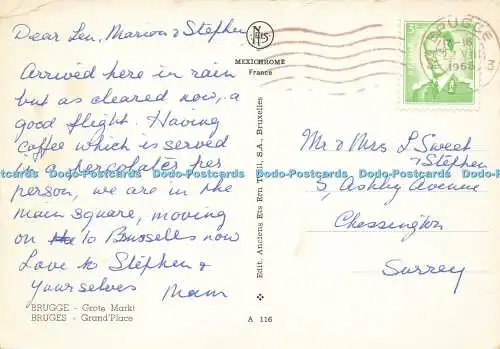 Dear Len, Marion & Stephen
Arrived here in rain
but as cleared now, a
good flight. Having
coffee which is served
in a percolater per
person, we are in the
main square, moving
on to Brussells now
Love to Stephen &
yourselves
Mam
BRUGGE - Grote Markt
BRUGES - Grand'Place
MEXICHROME
France
Edit. Anciens Ets Ern Thill, S.A., Bruxelles
A 116
BRUGGE
1968
3
Mr & Mrs L Sweet
& Stephen
5, Ashby Avenue
Chessington
Surrey
Dodo-Postcards Dodo-Postcards Dodo-Postcards Dodo-Postcards